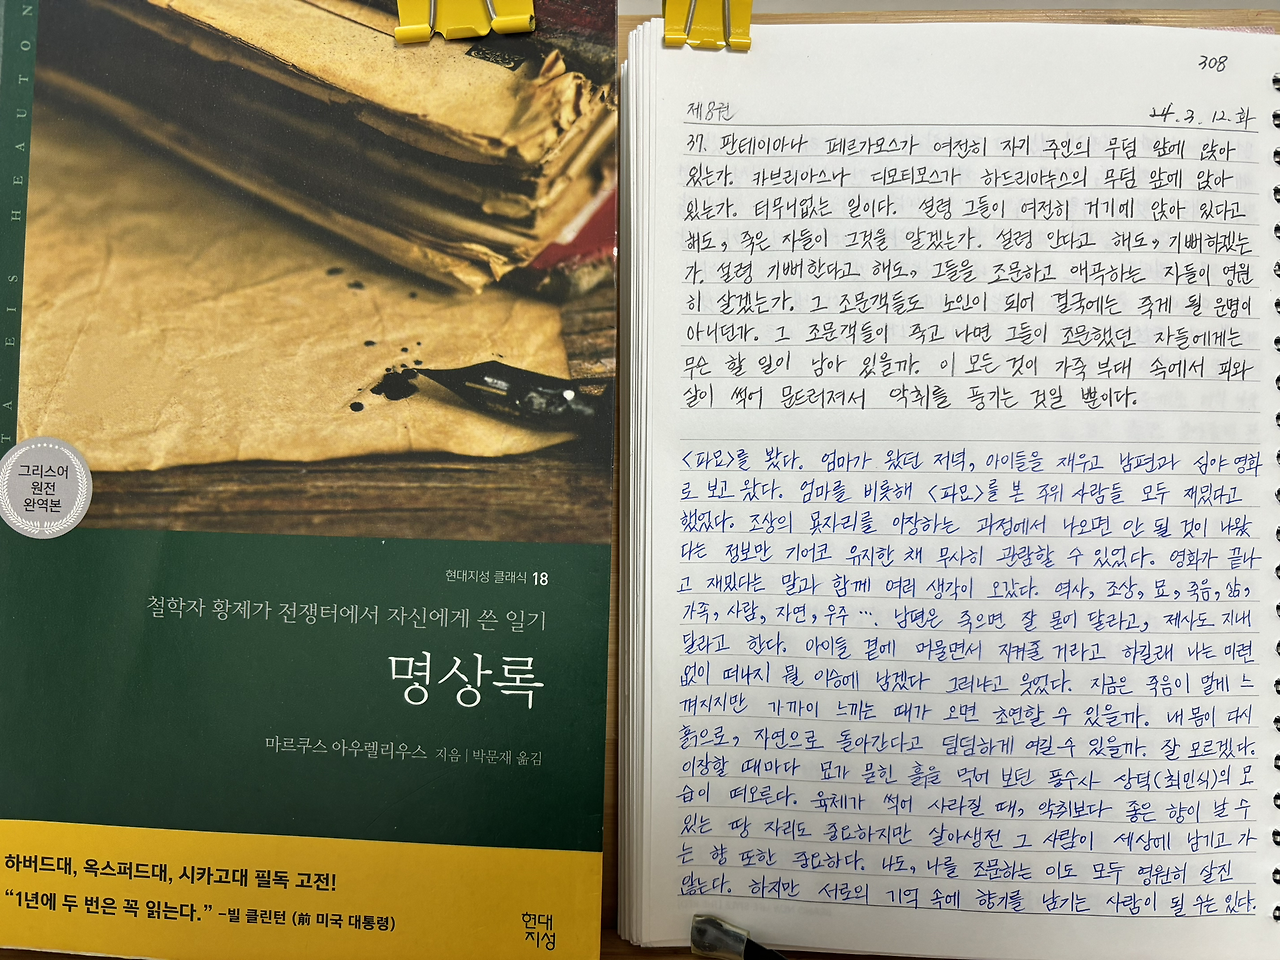 TA EIS HEAUTON
그리스어
원전
완역본
현대지성 클래식 18
철학자 황제가 전쟁터에서 자신에게 쓴 일기
명상록
마르쿠스 아우렐리우스 지음 | 박문재 옮김
하버드대, 옥스퍼드대, 시카고대 필독 고전!
“1년에 두 번은 꼭 읽는다.” –빌 클린턴 (前 미국 대통령)
현대
지성
308
제8권 24. 3. 12. 화
37. 판테이아나 페르가모스가 여전히 자기 주인의 무덤 앞에 앉아
있는가. 카브리아스나 디모티모스가 하드리아누스의 무덤 앞에 앉아
있는가. 터무니없는 일이다. 설령 그들이 여전히 거기에 앉아 있다고
해도, 죽은 자들이 그것을 알겠는가. 설령 안다고 해도, 기뻐하겠는
가. 설령 기뻐한다고 해도, 그들을 조문하고 애곡하는 자들이 영원
히 살겠는가. 그 조문객들도 노인이 되어 결국에는 죽게 될 운명이
아니던가. 그 조문객들이 죽고 나면 그들이 조문했던 자들에게는
무슨 할 일이 남아 있을까. 이 모든 것이 가죽 부대 속에서 피와
살이 썩어 문드러져서 악취를 풍기는 것일 뿐이다.
<파묘>를 봤다. 엄마가 왔던 저녁, 아이들을 재우고 남편과 심야 영화
로 보고 왔다. 엄마를 비롯해 <파묘>를 본 주위 사람들 모두 재밌다고
했었다. 조상의 묫자리를 이장하는 과정에서 나오면 안 될 것이 나왔
다는 정보만 기어코 유지한 채 무사히 관람할 수 있었다. 영화가 끝나
고 재밌다는 말과 함께 여러 생각이 오갔다. 역사, 조상, 묘, 죽음, 삶,
가족, 사람, 자연, 우주 … 남편은 죽으면 잘 묻어 달라고, 제사도 지내
달라고 한다. 아이들 곁에 머물면서 지켜줄 거라고 하길래 나는 미련
없이 떠나지 뭘 이승에 남겠다 그러냐고 웃었다. 지금은 죽음이 멀게 느
껴지지만 가까이 느끼는 때가 오면 초연할 수 있을까. 내 몸이 다시
흙으로, 자연으로 돌아간다고 덤덤하게 여길 수 있을까. 잘 모르겠다.
이장할 때마다 묘가 묻힌 흙을 먹어 보던 풍수사 상덕(최민식)의 모
습이 떠오른다. 육체가 썩어 사라질 때, 악취보다 좋은 향이 날 수
있는 땅 자리도 중요하지만 살아생전 그 사람이 세상에 남기고 가
는 향 또한 중요하다. 나도, 나를 조문하는 이도 모두 영원히 살진
않는다. 하지만 서로의 기억 속에 향기를 남기는 사람이 될 수는 있다.